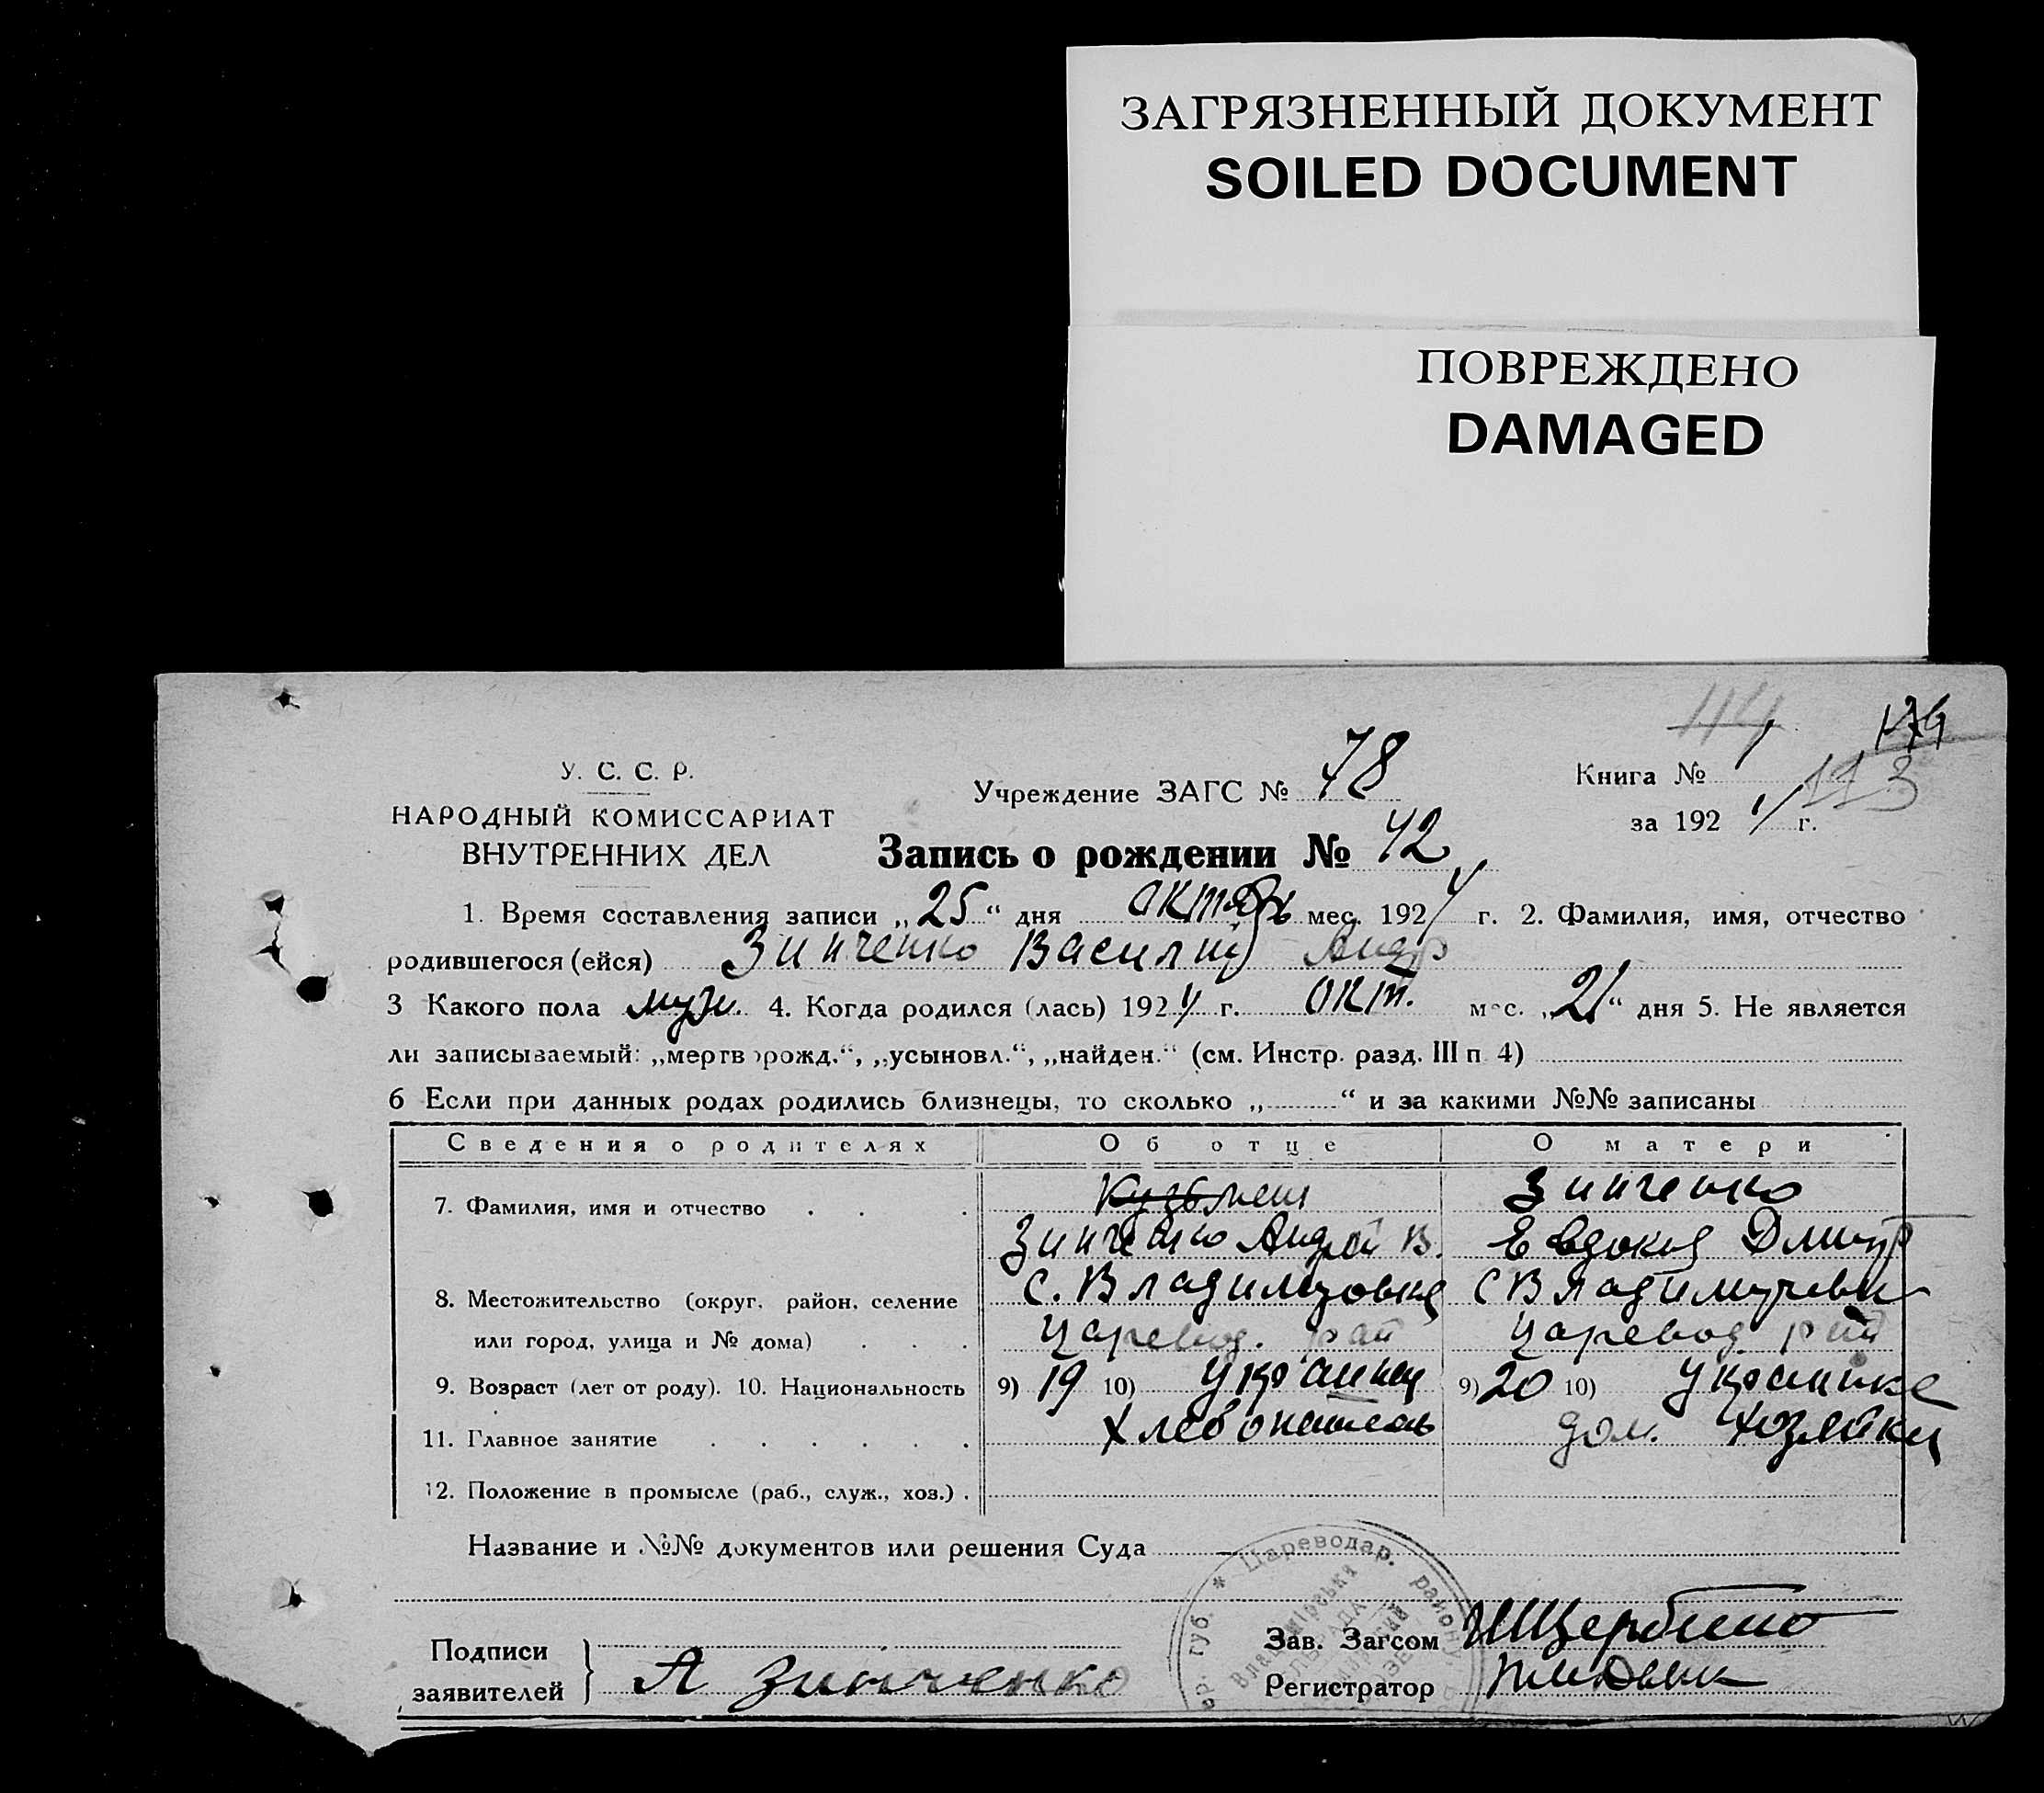 ЗАГРЯЗНЕННЫЙ ДОКУМЕНТ
SOILED DOCUMENT
ПОВРЕЖДЕНО
DAMAGED
114 174
У. С. С. Р.
НАРОДНЫЙ КОМИССАРИАТ
ВНУТРЕННИХ ДЕЛ
Учреждение ЗАГС № 78
Книга № 1 113
за 192 4 г.
Запись о рождении № 42
1. Время составления записи „25“ дня октябрь мес. 1924 г. 2. Фамилия, имя, отчество
родившегося (ейся) Зинченко Василий Андр
3 Какого пола муж. 4. Когда родился (лась) 1924 г. окт. мес. „21“ дня 5. Не является
ли записываемый: „мертворожд.“, „усыновл.“, „найден.“ (см. Инстр. разд. III п 4)
6 Если при данных родах родились близнецы, то сколько „ “ и за какими №№ записаны
Сведения о родителях Об отце О матери
7. Фамилия, имя и отчество Зинченко
Зинченко Андрей В. Евдокия Дмитр
8. Местожительство (округ, район, селение с. Владимировка с Владимировка
или город, улица и № дома) Царевод. рай Царевод. рай
9. Возраст (лет от роду). 10. Национальность 9) 19 10) Украинец 9) 20 10) Украинка
11. Главное занятие Хлебопашец дом. хозяйка
12. Положение в промысле (раб., служ., хоз.) .
Название и №№ документов или решения Суда
* Цареводар. району
губ.
Подписи
заявителей
А Зинченко
Зав. Загсом Щербино
Регистратор